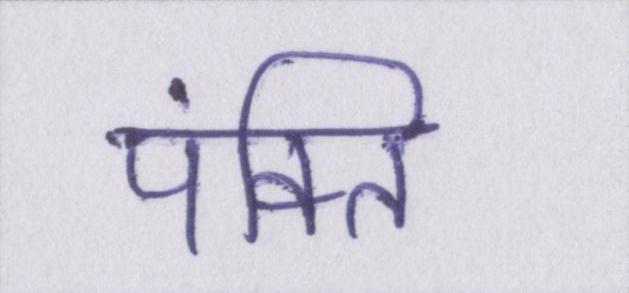 पंक्ति